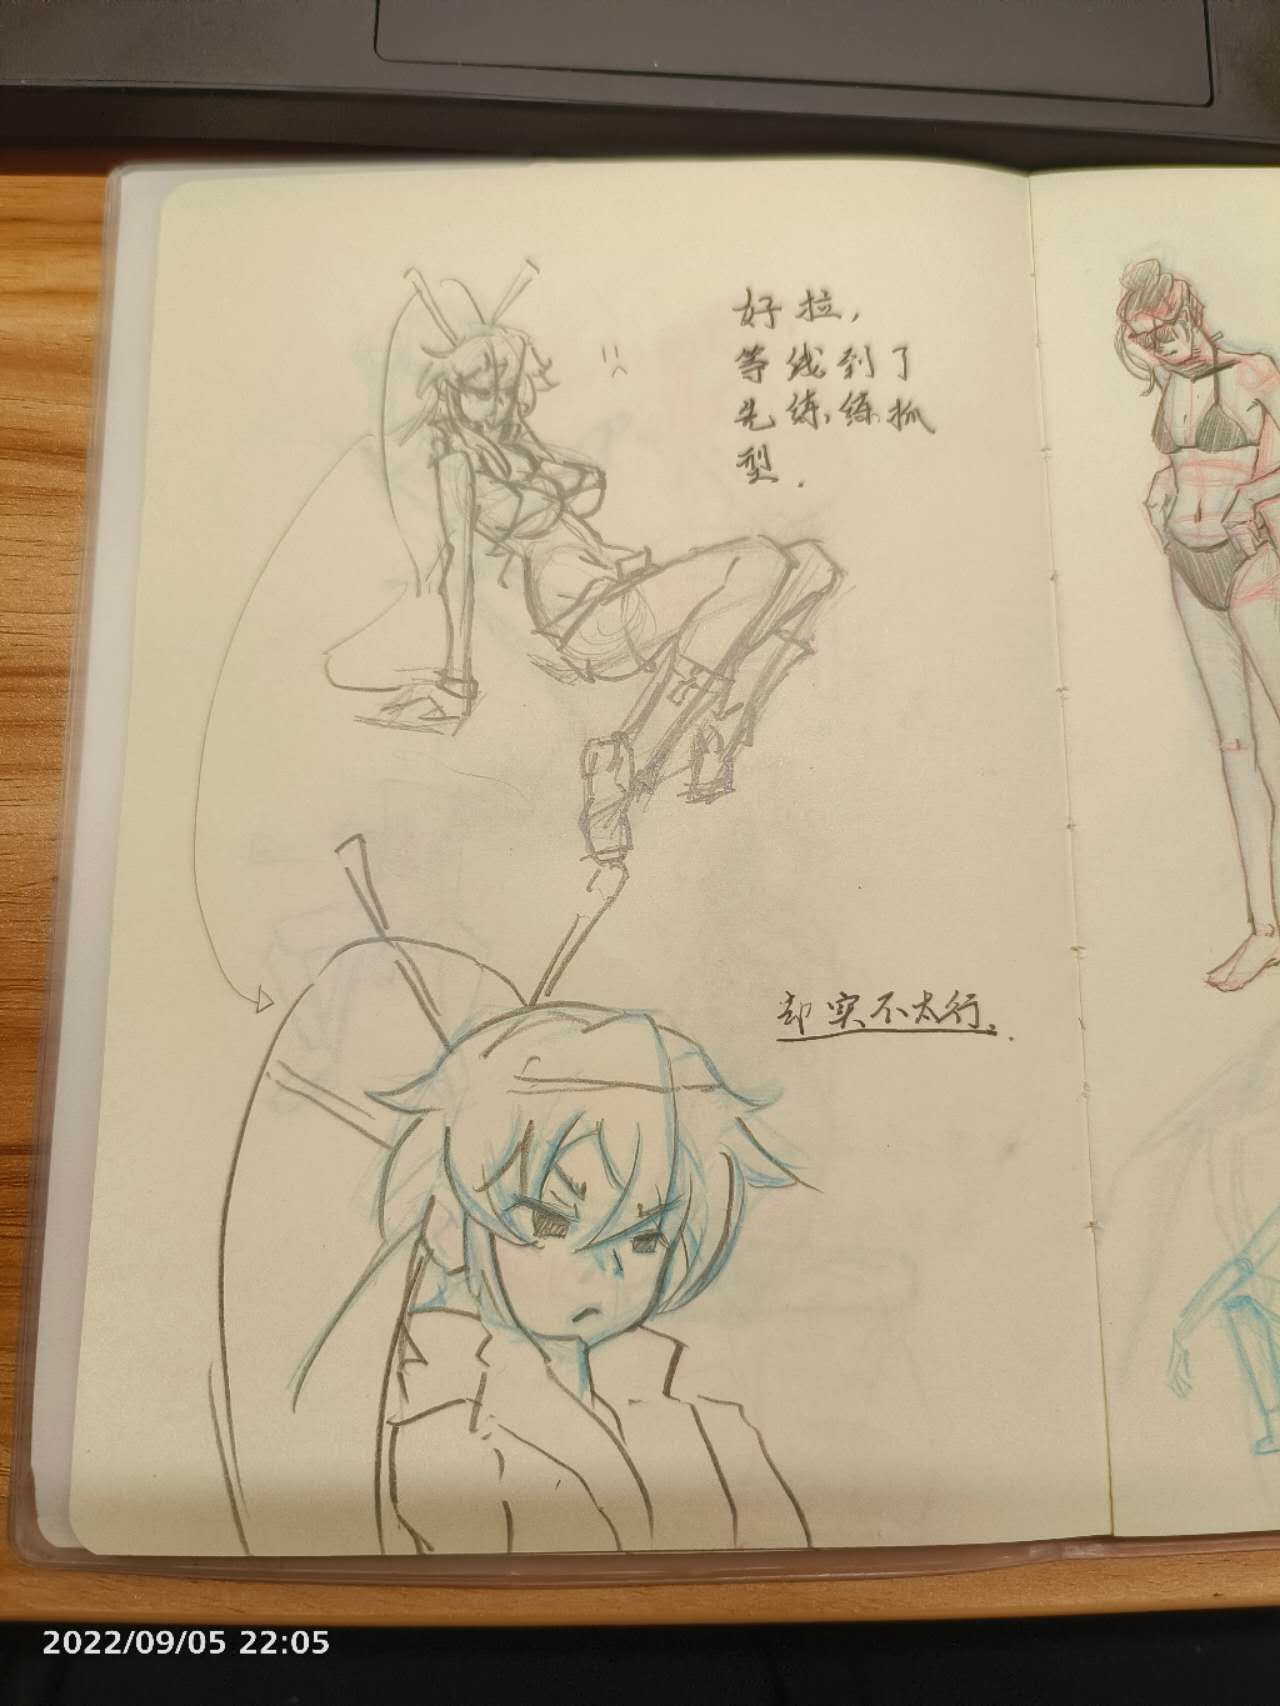 好拉，
等线到了
先练练抓
型.
却实不太行。.
2022/09/05 22:05